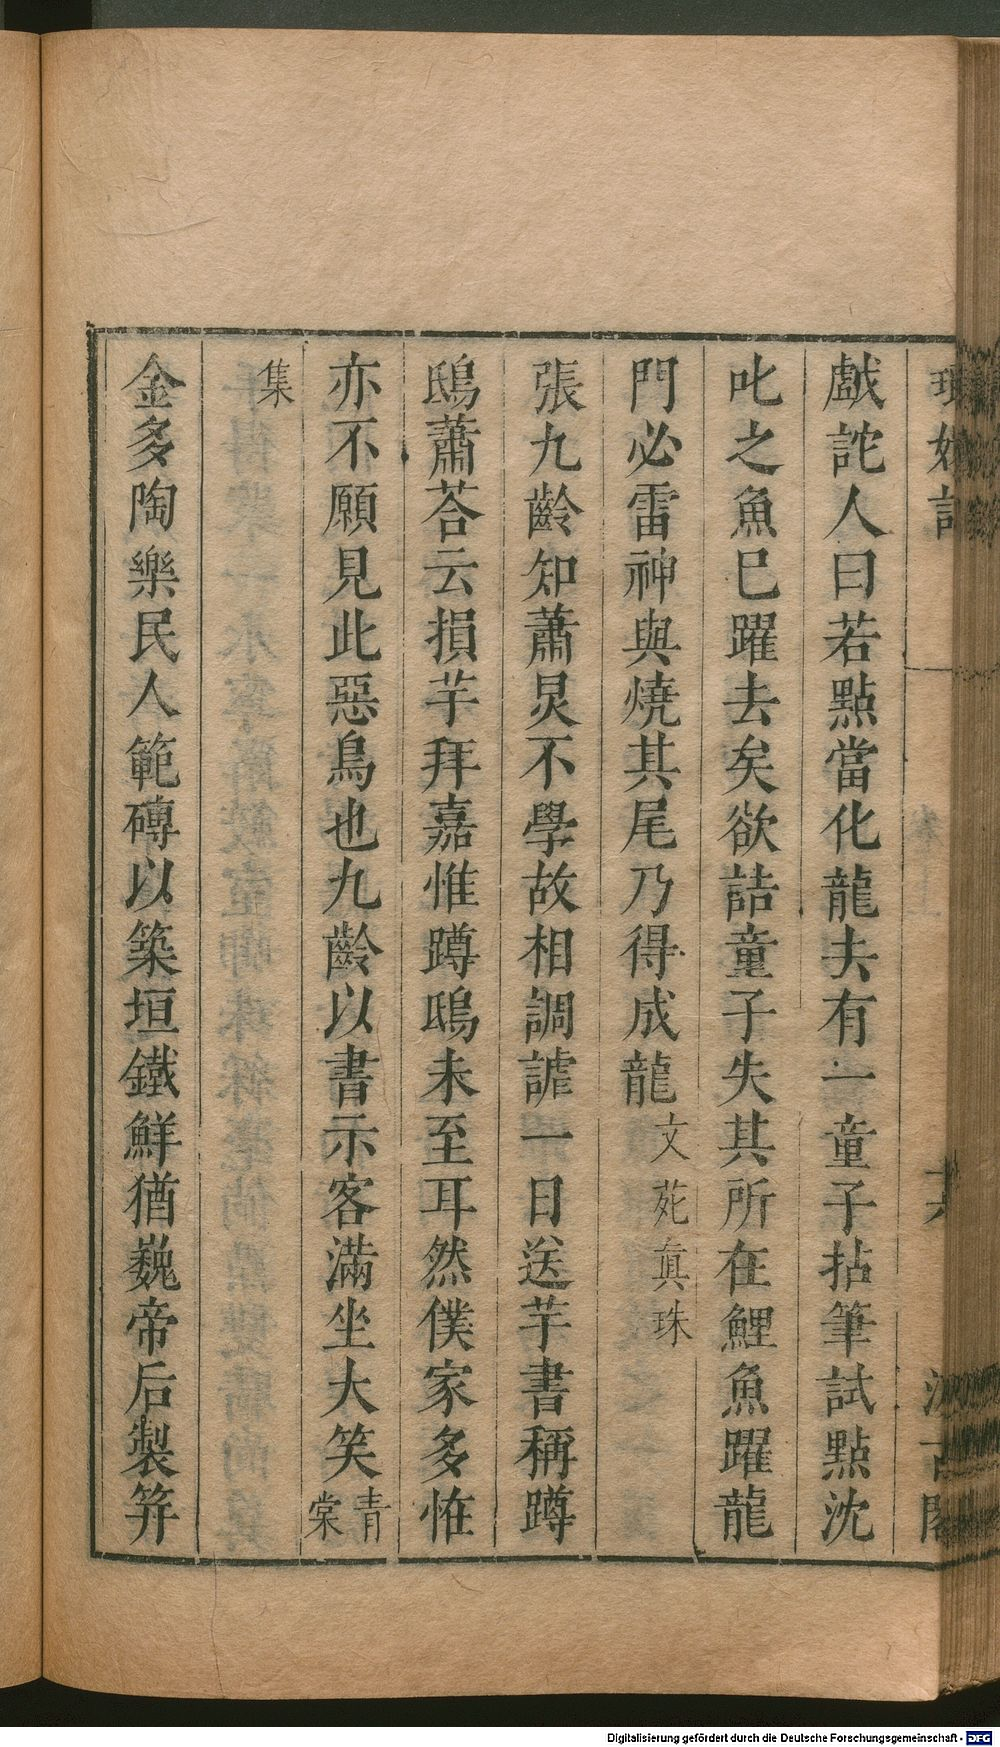 戲詫人曰若點當化龍夫有一童子拈筆試點沈
叱之魚巳躍去矣欲詰童子失其所在鯉魚躍龍
門必雷神與燒其尾乃得成龍文苑真珠
張九齡知蕭炅不學故相調謔一日送芋書稱蹲
鴟蕭荅云損芋拜嘉惟蹲鴟未至耳然僕家多恠
亦不願見此惡鳥也九齡以書示客滿坐大笑青棠
集
金多陶樂民人範磚以築垣鐵鮮猶巍帝后製笄
Digitalisierung gefördert durch die Deutsche Forschungsgemeinschaft - DFG